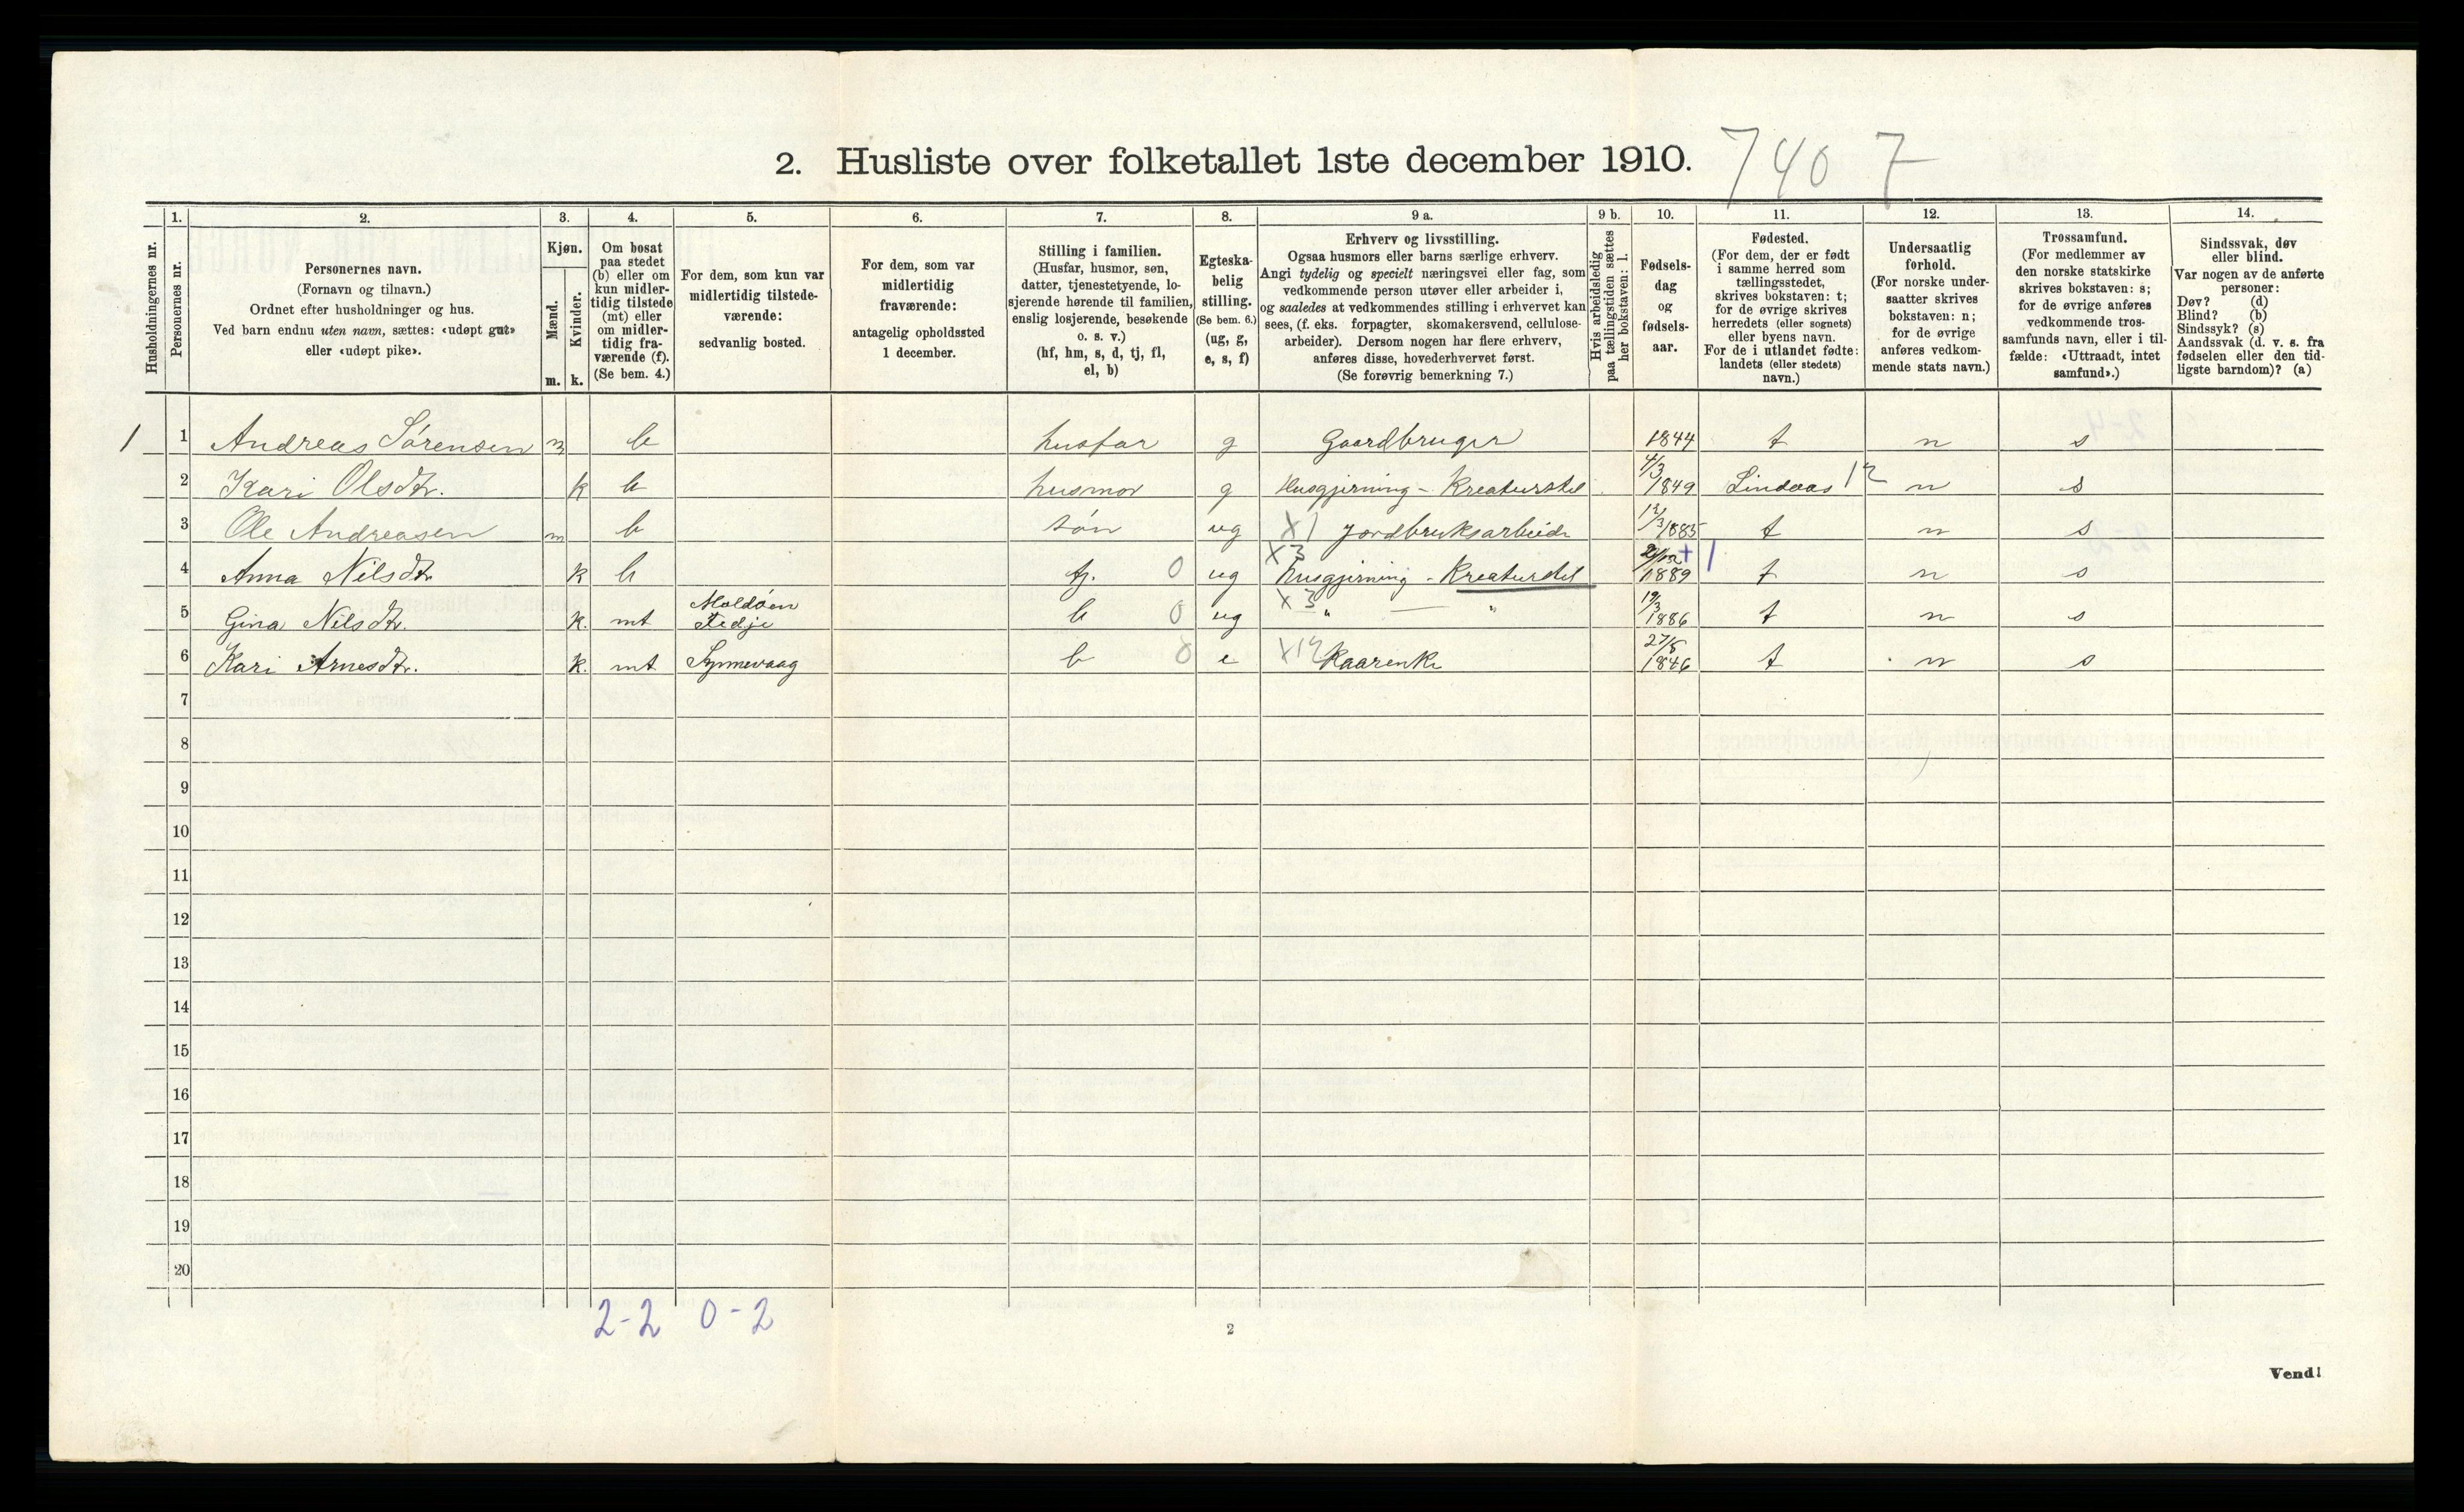 2. Husliste over folketallet 1ste december 1910. 740 7
Husholdningernes nr.
1. Personernes nr.
2. Personernes navn.
(Fornavn og tilnavn.)
Ordnet efter husholdninger og hus.
Ved barn endnu uten navn, sættes: «udøpt gut»
eller «udøpt pike».
3. Kjøn.
Mænd. m.
Kvinder. k.
4. Om bosat
paa stedet
(b) eller om
kun midler-
tidig tilstede
(mt) eller
om midler-
tidig fra-
værende (f).
(Se bem. 4.)
5. For dem, som kun var
midlertidig tilstede-
værende:
sedvanlig bosted.
6. For dem, som var
midlertidig
fraværende:
antagelig opholdssted
1 december.
7. Stilling i familien.
(Husfar, husmor, søn,
datter, tjenestetyende, lo-
sjerende hørende til familien,
enslig losjerende, besøkende
o. s. v.)
(hf, hm, s, d, tj, fl,
el, b)
8. Egteska-
belig
stilling.
(Se bem. 6.)
(ug, g,
e, s, f)
9 a. Erhverv og livsstilling.
Ogsaa husmors eller barns særlige erhverv.
Angi tydelig og specielt næringsvei eller fag, som
vedkommende person utøver eller arbeider i,
og saaledes at vedkommendes stilling i erhvervet kan
sees, (f. eks. forpagter, skomakersvend, cellulose-
arbeider). Dersom nogen har flere erhverv,
anføres disse, hovederhvervet først.
(Se forøvrig bemerkning 7.)
9 b. Hvis arbeidsledig
paa tællingstiden sættes
her bokstaven: l.
10. Fødsels-
dag
og
fødsels-
aar.
11. Fødested.
(For dem, der er født
i samme herred som
tællingsstedet,
skrives bokstaven: t;
for de øvrige skrives
herredets (eller sognets)
eller byens navn.
For de i utlandet fødte:
landets (eller stedets)
navn.)
12. Undersaatlig
forhold.
(For norske under-
saatter skrives
bokstaven: n;
for de øvrige
anføres vedkom-
mende stats navn.)
13. Trossamfund.
(For medlemmer av
den norske statskirke
skrives bokstaven: s;
for de øvrige anføres
vedkommende tros-
samfunds navn, eller i til-
fælde: «Uttraadt, intet
samfund».)
14. Sindssvak, døv
eller blind.
Var nogen av de anførte
personer:
Døv? (d)
Blind? (b)
Sindssyk? (s)
Aandssvak (d. v. s. fra
fødselen eller den tid-
ligste barndom)? (a)
1 1 Andreas Sørensen m b husfar g Gaardbruger 1844 t n s
2 Kari Olsdtr. k b husmor g Husgjerning - Kreaturstel 4/3 1849 Lindaas 12 n s
3 Ole Andreasen m b søn ug X1 Jordbruksarbeide 12/3 1885 t n s
4 Anna Nilsdtr k b tj. 0 ug X3 husgjerning - Kreaturstel 1889 + 1 t n s
5 Gina Nilsdtr. k. mt Moldøen Fedje b 0 ug X3 " — " 19/3 1886 t n s
6 Kari Arnesdtr. k. mt Synnevaag b 0 e Kaarenke 27/8 1846 t n s
7
8
9
10
11
12
13
14
15
16
17
18
19
20
2-2 0-2
2
Vend!